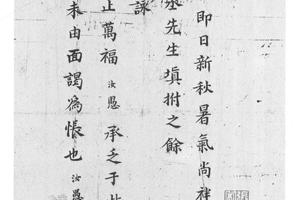 即日新秋暑氣尚祥
泳先生塡拊之餘
詠
止萬福汝愚承乏于此
未由面謁爲悵也汝愚